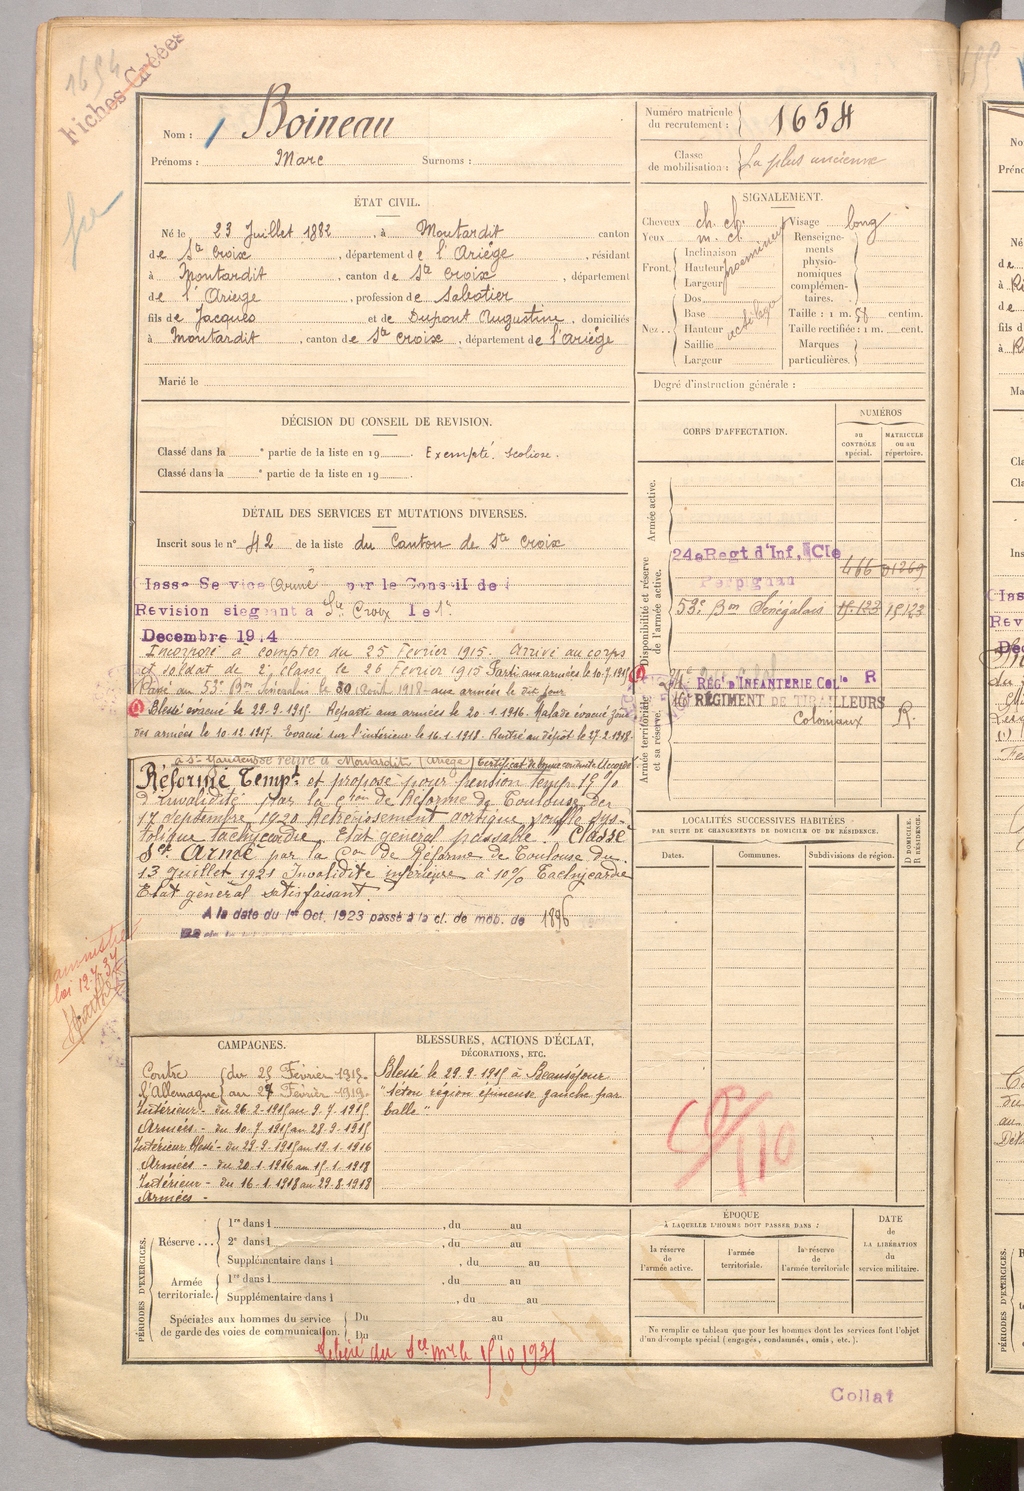 Fiches Créées
Nom : Boineau
Prénoms : Marc Surnoms :
Numéro matricule
du recrutement : 1658
Classe
de mobilisation : La plus ancienne
ÉTAT CIVIL.
Né le 23 Juillet 1882, à Montardit canton
de Ste Croix, département de l'Ariège, résidant
à Montardit, canton de Ste Croix, département
de l'Ariège, profession de Sabotier
fils de Jacques et de Dupont Augustine, domiciliés
à Montardit, canton de Ste Croix, département de l'Ariège
Marié le
SIGNALEMENT.
Cheveux ch. ch. Visage long
Yeux m. cl. Renseigne-
ments
physio-
nomiques
complémen-
taires.
Front. Inclinaison
Hauteur proéminent
Largeur
Nez.. Dos
Base
Hauteur
Saillie
Largeur
Taille : 1 m. 58 centim.
Taille rectifiée : 1 m. cent.
Marques
particulières.
Degré d'instruction générale :
DÉCISION DU CONSEIL DE REVISION.
Classé dans la e partie de la liste en 19 . Exempté. Scoliose.
Classé dans la e partie de la liste en 19 .
DÉTAIL DES SERVICES ET MUTATIONS DIVERSES.
Inscrit sous le n° 42 de la liste du Canton de Ste Croix
lasse Service Armé par le Conseil de
Revision siegeant à Ste Croix le 1er
Decembre 1914
Incorporé à compter du 25 Février 1915. Arrivé au corps
et soldat de 2e classe le 26 Février 1915 Parti aux armées le 10.7.1915
Passé au 53e Bon Sénégalais le 30 Août 1918 aux armées le dit jour
Blessé évacué le 29.9.1915. Reparti aux armées le 20.1.1916. Malade évacué zone
des armées le 10.12.1917. Evacué sur l'intérieur le 16.1.1918. Rentré au dépôt le 27.2.1918.
se retire à Montardit (Ariège) Certificat de bonne conduite Accordé
Réformé Tempt. et proposé pour pension temp. 15%
d'invalidité par la Con de Réforme de Toulouse du
17 Septembre 1920 Rétrécissement aortique, souffle sys-
tolique tachycardie. Etat général passable. Classé
Sce Armé par la Con de Réforme de Toulouse du
13 Juillet 1921 Invalidité inférieure à 10% Tachycardie
Etat général satisfaisant.
A la date du 1er Oct. 1923 passé à la cl. de mob. de 1896
amnistié
loi 12.7.37
CORPS D'AFFECTATION.
NUMÉROS
au
CONTRÔLE
spécial.
MATRICULE
ou au
répertoire.
Armée active.
Disponibilité et réserve
de l'armée active.
24e Regt d'Inf, Cle 466 01269
Perpignan
53e Bon Sénégalais 15.123 15123
Armée territoriale
et sa réserve.
REGt D'INFANTERIE COLle R
16e RÉGIMENT DE TIRAILLEURS
Coloniaux R.
LOCALITÉS SUCCESSIVES HABITÉES
PAR SUITE DE CHANGEMENTS DE DOMICILE OU DE RÉSIDENCE.
D DOMICILE.
R RÉSIDENCE.
Dates. Communes. Subdivisions de région.
CAMPAGNES.
Contre du 25 Février 1915
l'Allemagne au 27 Février 1919.
Intérieur - du 26.2.1915 au 9.7.1915
Armées - du 10.7.1915 au 28.9.1915
Intérieur Blessé - du 29.9.1915 au 19.1.1916
Armées - du 20.1.1916 au 15.1.1918
Intérieur - du 16.1.1918 au 29.8.1918
Armées -
BLESSURES, ACTIONS D'ÉCLAT,
DÉCORATIONS, ETC.
Blessé le 29.9.1915 à Beauséjour
"Séton région épineuse gauche par
balle"
PÉRIODES D'EXERCICES.
Réserve ... 1re dans l , du au
2e dans l , du au
Supplémentaire dans l , du au
Armée
territoriale. 1re dans l , du au
Supplémentaire dans l , du au
Spéciales aux hommes du service
de garde des voies de communication. Du au
Du au
Libéré du Sce Mre le 15 10 1931
ÉPOQUE
À LAQUELLE L'HOMME DOIT PASSER DANS :
la réserve
de
l'armée active.
l'armée
territoriale.
la réserve
de
l'armée territoriale
DATE
de
LA LIBÉRATION
du
service militaire.
Ne remplir ce tableau que pour les hommes dont les services font l'objet
d'un décompte spécial (engagés, condamnés, omis, etc.).
Collat